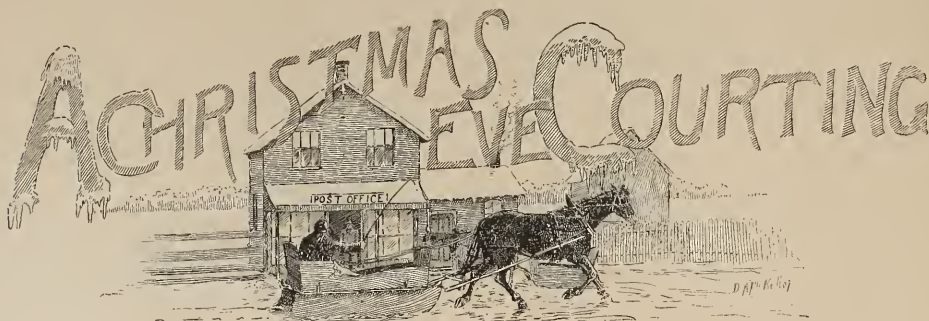 A CHRISTMAS EVE COURTING
POST OFFICE